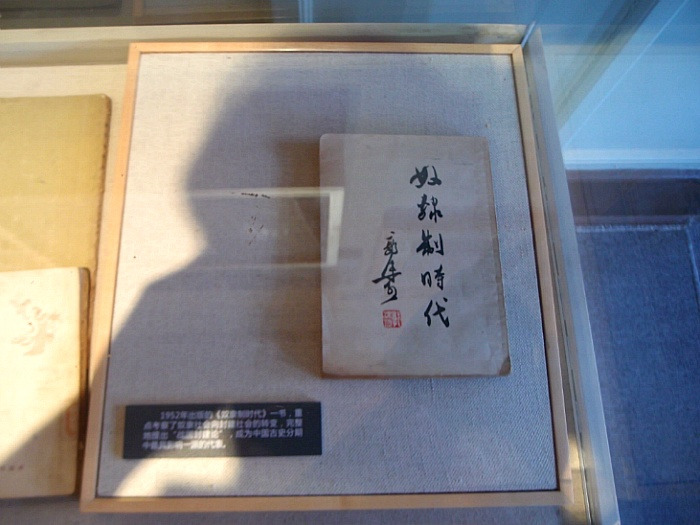 奴隸制時代
郭沫若
1952年出版的《奴隶制时代》一书，重
点考察了奴隶社会向封建社会的转变，完整
地提出“战国封建论”，成为中国古史分期
中最具影响一派的代表。